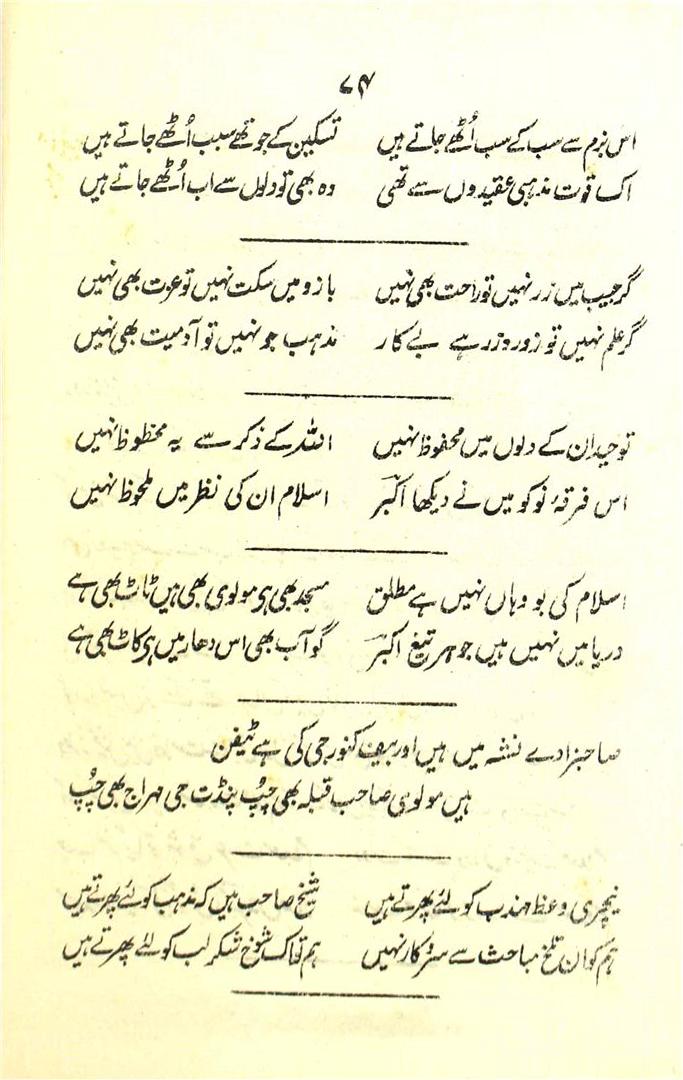 ۷۴
اس بزم سے سب کے سب اُٹھے جاتے ہیں تسکین کے جو تھے سبب اُٹھے جاتے ہیں
اک قوت مذہبی عقیدوں سے تھی وہ بھی تو دلوں سے اب اُٹھے جاتے ہیں
گر جیب میں زر نہیں تو راحت بھی نہیں بازو میں سکت نہیں تو عزت بھی نہیں
گر علم نہیں تو زور و زر ہے بے کار مذہب جو نہیں تو آدمیت بھی نہیں
توحید ان کے دلوں میں محفوظ نہیں اللہ کے ذکر سے یہ محظوظ نہیں
اس فرقۂ نو کو میں نے دیکھا اکبرؔ اسلام ان کی نظر میں ملحوظ نہیں
اسلام کی بو وہاں نہیں ہے مطلق مسجد بھی ہی مولوی بھی ہیں ٹاٹ بھی ہے
دریا میں نہیں ہیں جوہر تیغ اکبرؔ گو آب بھی اس دھار میں ہی کاٹ بھی ہے
صاحبزادے نشہ میں ہیں اور بیف کنور جی کی ہے ٹیفن
ہیں مولوی صاحب قبلہ بھی چُپ پنڈت جی مہراج بھی چُپ
نیچری وعظ مہذب کو لئے پھرتے ہیں شیخ صاحب ہیں کہ مذہب کو لئے پھرتے ہیں
ہم کو ان تلخ مباحث سے سروکار نہیں ہم تو اک شوخ شکر لب کو لئے پھرتے ہیں